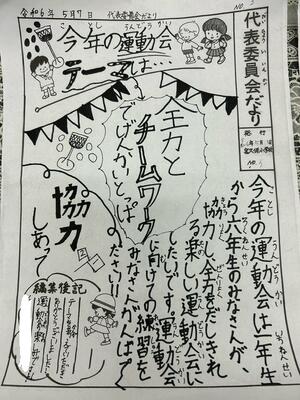 令和6年 5月7日 代表委員会だより
NO.
代表委員会だより
発行
NO.
今年の運動会
テーマは…
全力と
チームワーク
でげんかいとっぱ
協力
しあって
今年の運動会は一年生
から六年生のみなさんが、
協力し、全力をだしきれ
る楽しい運動会に
したいです。運動会
に向けての練習を
みなさんがんばってく
ださい!!
編集後記
テーマを
ありがとうございました